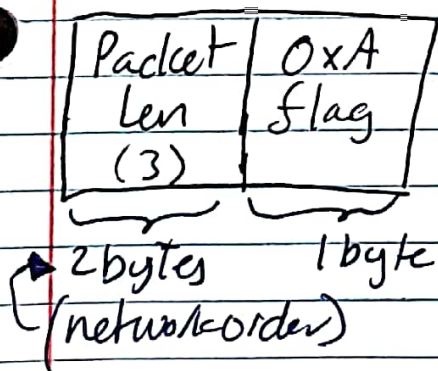 Packet
Len
(3)
0xA
flag
2 bytes
1 byte
(network order)